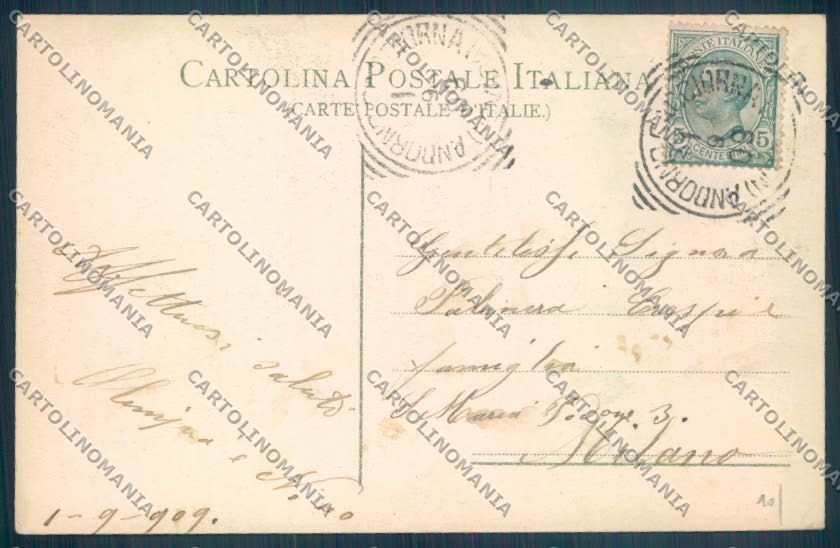 CARTOLINA POSTALE ITALIANA
(CARTE POSTALE D'ITALIE.)
POSTE ITALIANE
5 CENTESIMI 5
ANDORNO
ANDORNO
Gentiliss. Signora
Palmira Crespi e
famiglia
S. Maria Podone. 3.
Milano
Affettuosi saluti
e Nino
1-9-909.
CARTOLINOMANIA